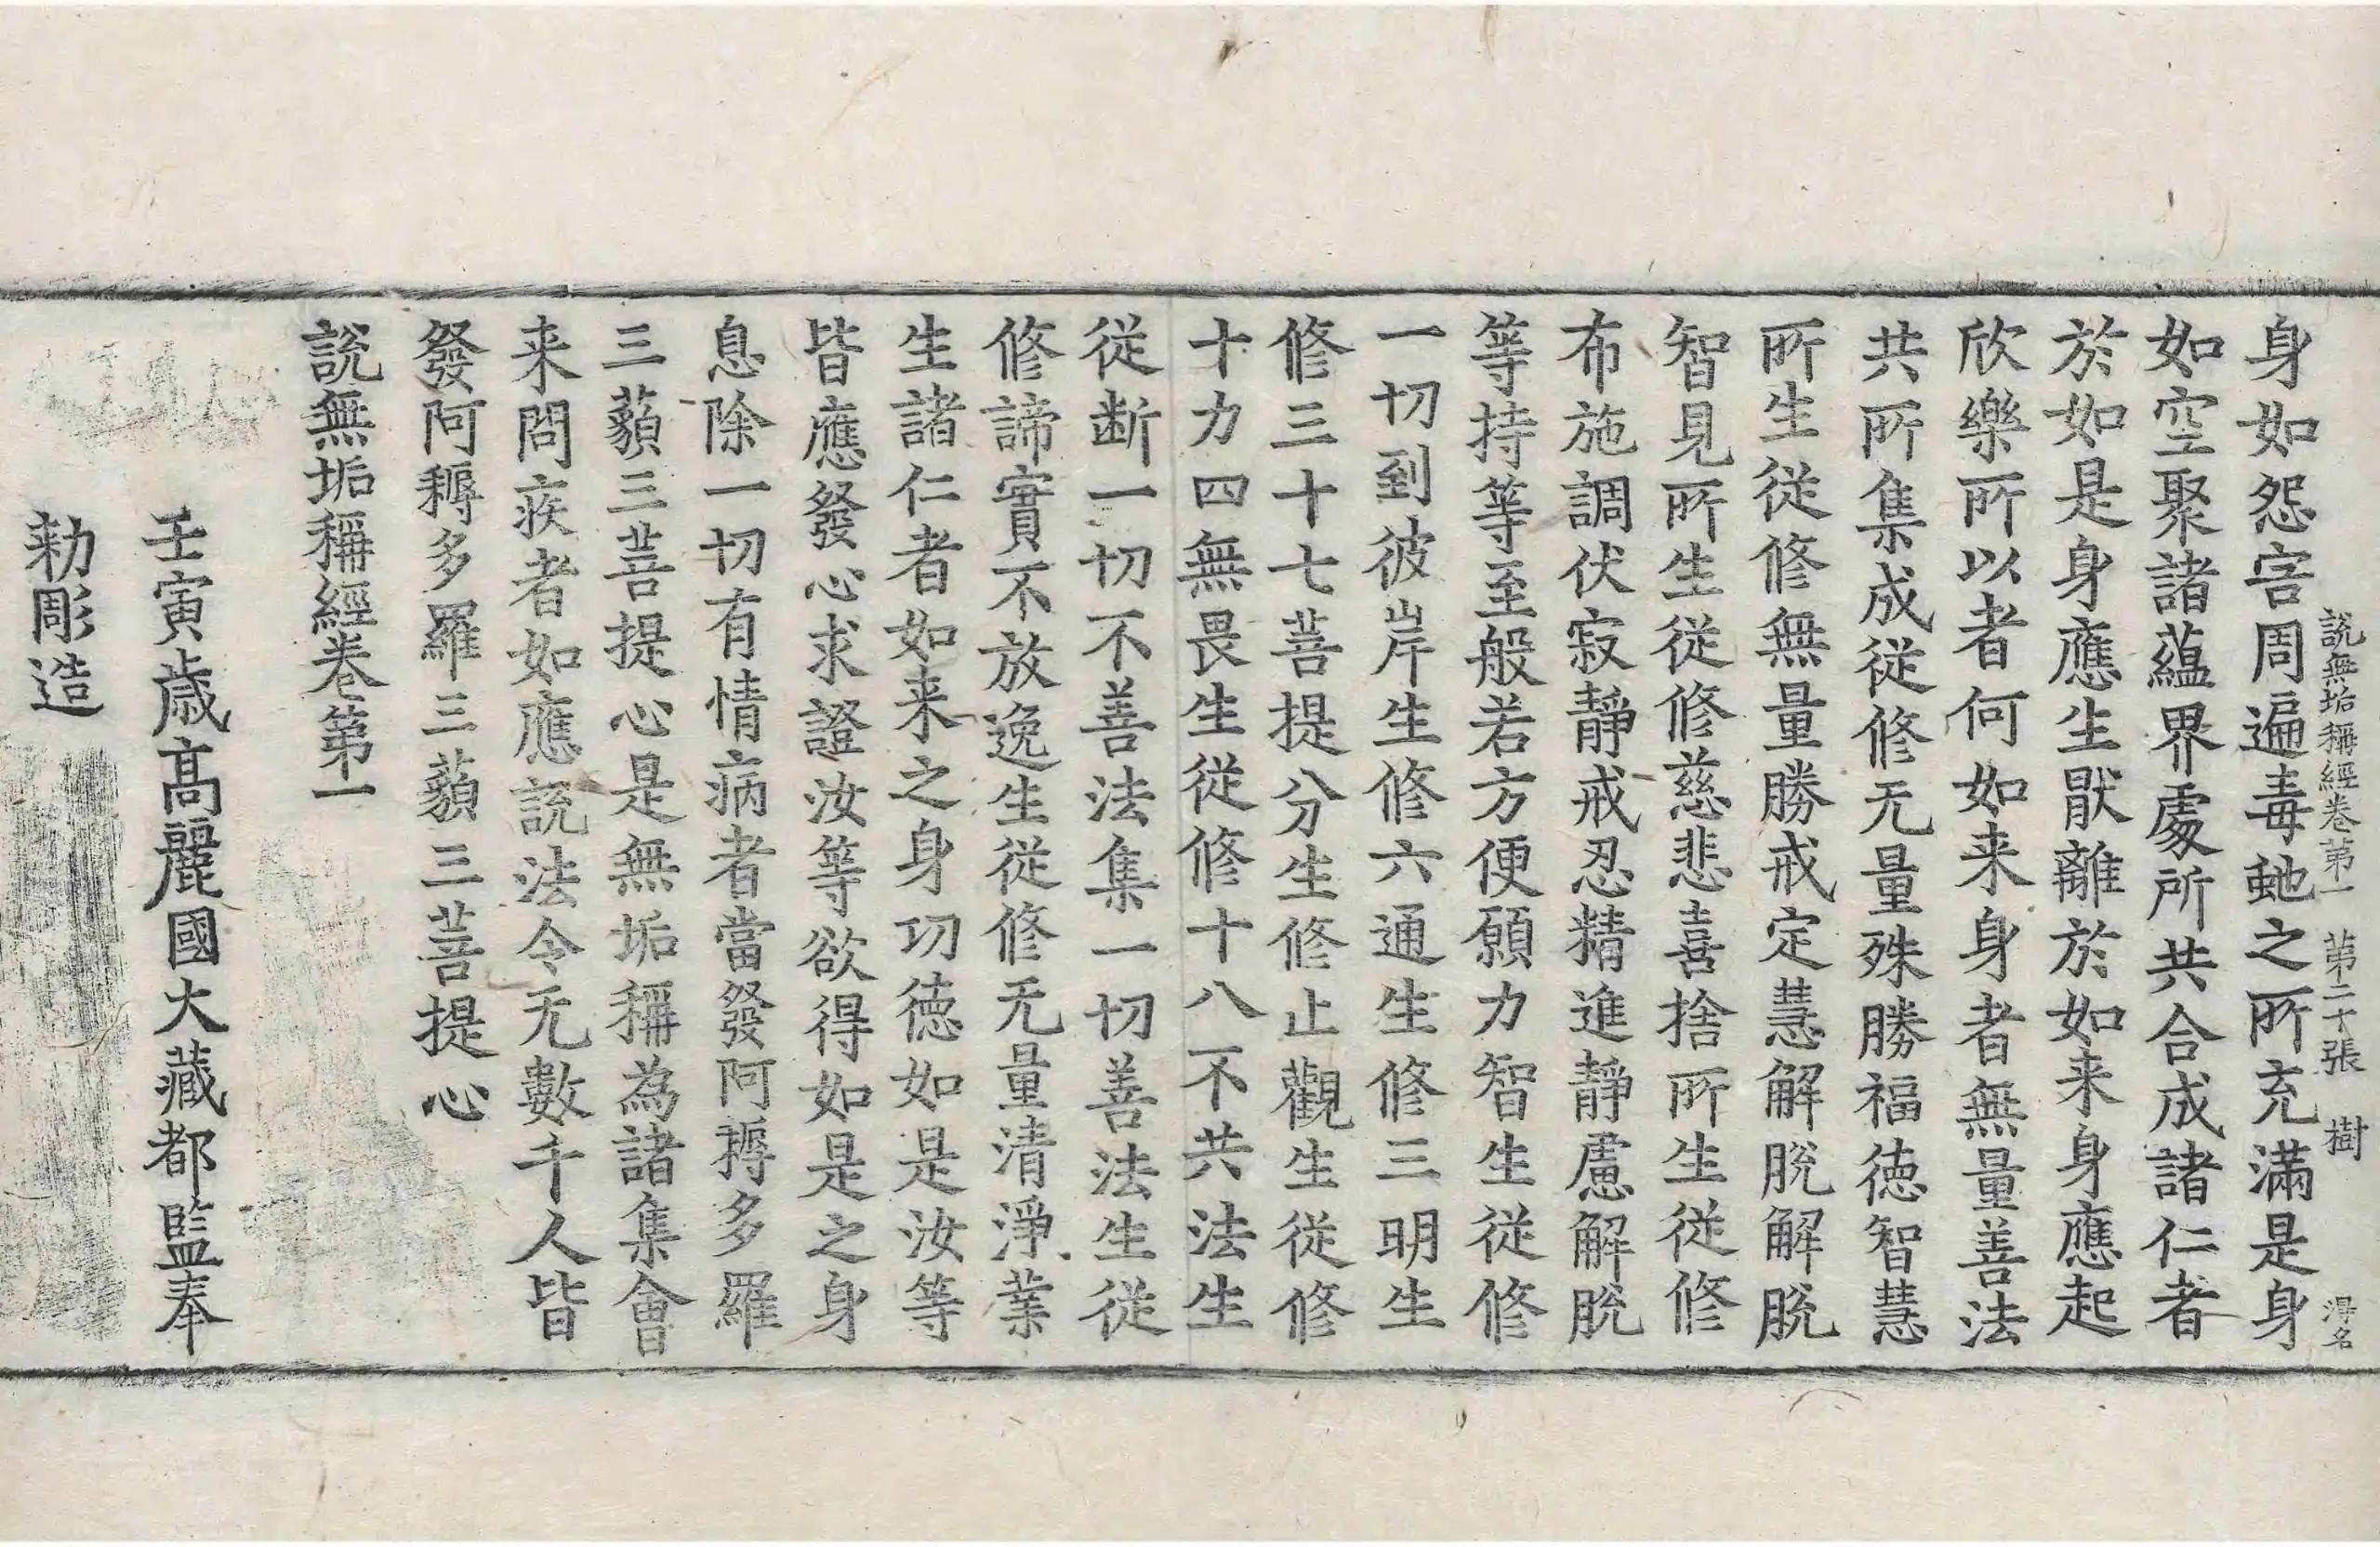 說無垢稱經卷第一 第二十張 樹 淂名
身如怨害周遍毒虵之所充滿是身
如空聚諸蘊界處所共合成諸仁者
於如是身應生猒離於如来身應起
欣樂所以者何如来身者無量善法
共所集成從修无量殊勝福德智慧
所生從修無量勝戒定慧解脫解脫
智見所生從修慈悲喜捨所生從修
布施調伏寂靜戒忍精進靜慮解脫
等持等至般若方便願力智生從修
一切到彼岸生修六通生修三明生
修三十七菩提分生修止觀生從修
十力四無畏生從修十八不共法生
從断一切不善法集一切善法生從
修諦實不放逸生從修无量清淨業
生諸仁者如来之身功德如是汝等
皆應發心求證汝等欲得如是之身
息除一切有情病者當發阿耨多羅
三藐三菩提心是無垢稱為諸集會
来問疾者如應說法令无數千人皆
發阿耨多羅三藐三菩提心
說無垢稱經卷第一
壬寅歲高麗國大藏都監奉
勑彫造